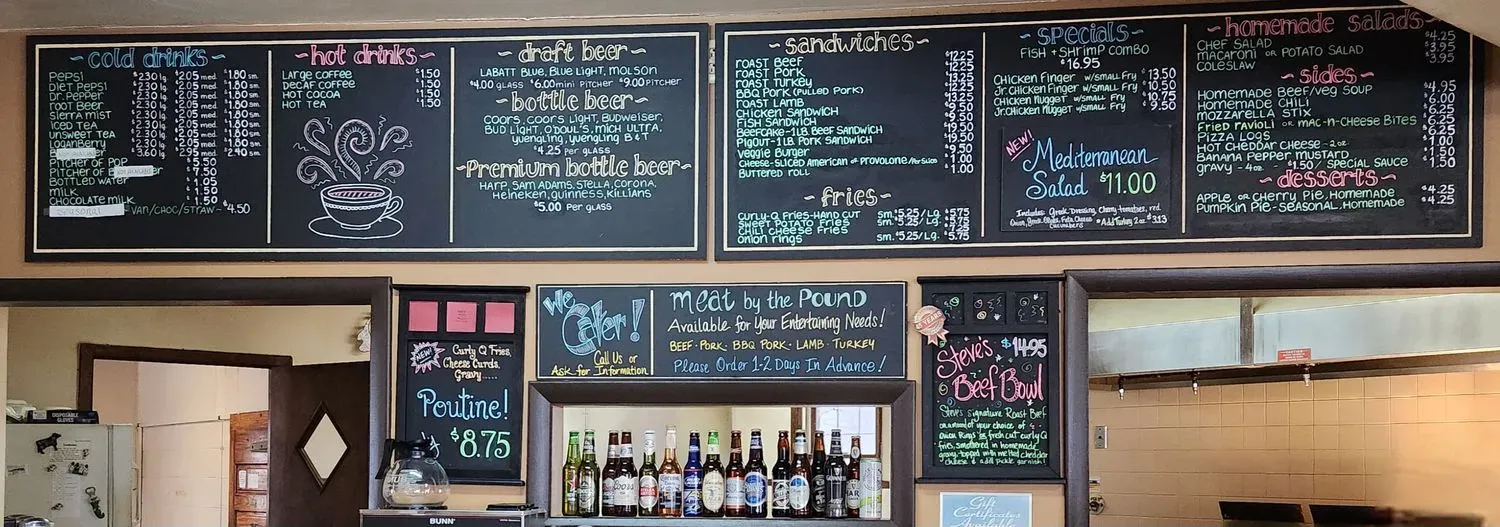 ~cold drinks~
Pepsi $2.30 lg $2.05 med $1.80 sm
Diet Pepsi $2.30 lg $2.05 med. $1.80 sm.
Dr. Pepper $2.30 lg $2.05 med. $1.80 sm.
Root Beer $2.30 lg $2.05 med. $1.80 sm.
Sierra Mist $2.30 lg $2.05 med. $1.80 sm.
Iced Tea $2.30 lg $2.05 med. $1.80 sm.
Unsweet Tea $2.30 lg $2.05 med. $1.80 sm.
Loganberry $2.30 lg $2.05 med. $1.80 sm.
$3.60 lg $2.95 med. $2.40 sm.
Pitcher of Pop $5.50
Pitcher of
Bottled Water
Milk
Chocolate Milk $1.50
Seasonal Van/Choc/Straw~ $4.50
~hot drinks~
Large Coffee $1.50
Decaf Coffee $1.50
Hot Cocoa $1.50
Hot Tea $1.50
~draft beer~
Labatt Blue, Blue Light, Molson
$4.00 glass $6.00 mini pitcher $9.00 pitcher
~bottle beer~
Coors, Coors Light, Budweiser,
Bud Light, O'Doul's, Mich Ultra,
Yuengling, Yuengling B & T
$4.25 per glass
~Premium bottle beer~
Harp, Sam Adams, Stella, Corona,
Heineken, Guinness, Killians
$5.00 per glass
~sandwiches~
Roast Beef $12.25
Roast Pork
Roast Turkey $13.25
BBQ Pork (Pulled Pork) $12.25
Roast Lamb
Chicken Sandwich
Fish Sandwich
Beefcake-1LB. Beef Sandwich $19.50
Pigout-1LB. Pork Sandwich $19.50
Veggie Burger
Cheese-Sliced American or Provolone/Per Slice $1.00
Buttered Roll $1.00
~fries~
Curly-Q Fries-Hand Cut sm. $5.25/Lg. $5.75
Sweet Potato Fries sm. $5.25/Lg. $5.75
Chili Cheese Fries $7.25
Onion Rings sm. $5.25/Lg. $5.75
~specials~
Fish + Shrimp Combo
$16.95
Chicken Finger w/Small Fry $13.50
Jr. Chicken Finger w/Small Fry $10.50
Chicken Nugget w/Small Fry $10.75
Jr. Chicken Nugget w/Small Fry $9.50
New!
Mediterranean
Salad $11.00
Includes: Greek Dressing, Cherry tomatoes, red
Onion, Greek Olives, Feta Cheese
Cucumbers *Add Turkey 2oz $3.13
~homemade salads~
Chef Salad $4.25
Macaroni or Potato Salad $3.95
Coleslaw $3.95
~sides~
Homemade Beef/Veg Soup $4.95
Homemade Chili $6.00
Mozzarella Stix $6.25
Fried Ravioli or Mac-n-Cheese Bites $6.25
Pizza Logs $6.25
Hot Cheddar Cheese - 2oz $1.00
Banana Pepper Mustard $1.00
Gravy - 4oz $1.50/ Special Sauce $1.50
~desserts~
Apple or Cherry Pie, Homemade $4.25
Pumpkin Pie-Seasonal, Homemade $4.25
We
Cater!
Call Us or
Ask for Information
Meat by the Pound
Available for Your Entertaining Needs!
Beef · Pork · BBQ Pork · Lamb · Turkey
Please Order 1-2 Days In Advance!
New!
Curly Q Fries,
Cheese Curds,
Gravy.....
Poutine!
$8.75
Years
Steve's $14.95
Beef Bowl
Steve's Signature Roast Beef
on a mound of your choice of
Onion Rings or fresh cut curly Q
fries, smothered in homemade
gravy, topped with melted cheddar
cheese & add pickle garnish!
Gift
Certificates
Available
BUNN
Disposable
Gloves